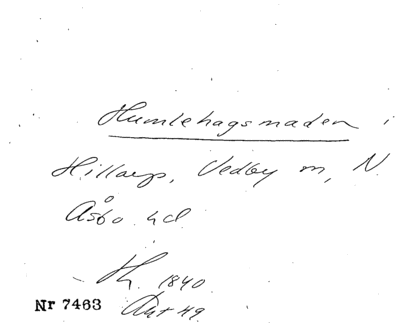 Humlehagsmaden i
Hillarp, Vedby m, N
Åsbo hd
1840
Nr 7463 Akt 49